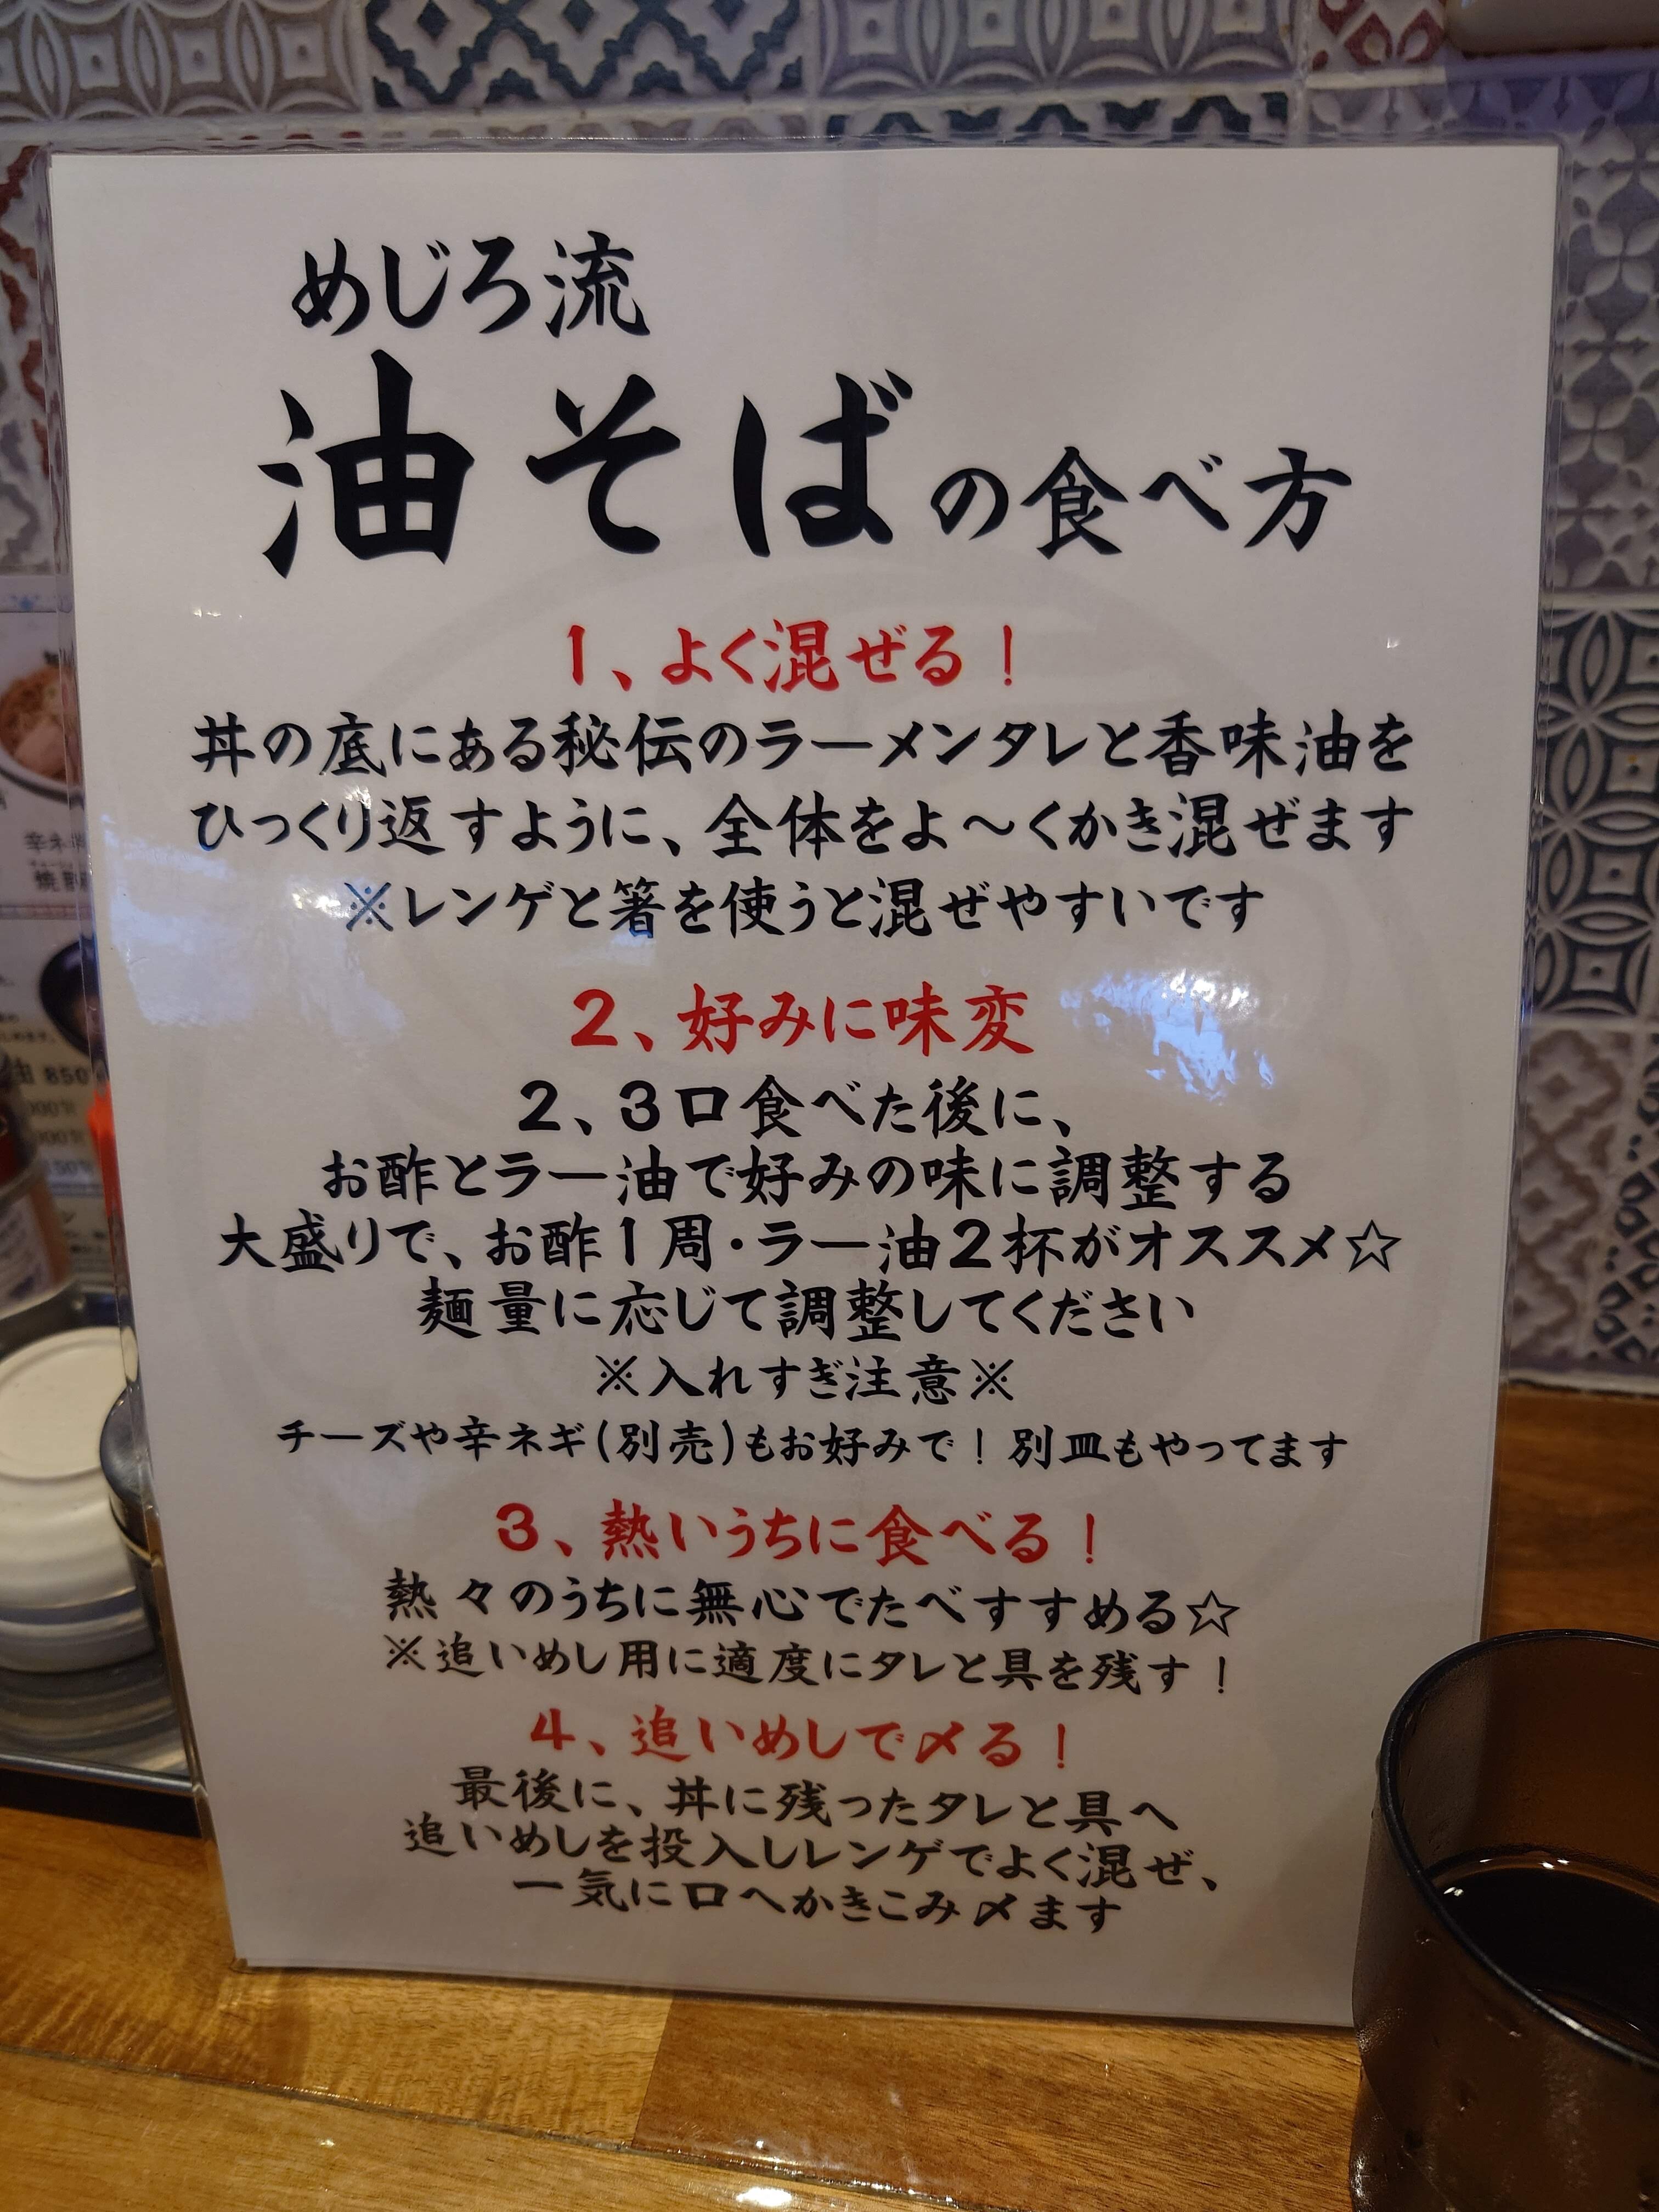 めじろ流
油そばの食べ方
1、よく混ぜる！
丼の底にある秘伝のラーメンタレと香味油を
ひっくり返すように、全体をよ～くかき混ぜます
※レンゲと箸を使うと混ぜやすいです
2、好みに味変
2、3口食べた後に、
お酢とラー油で好みの味に調整する
大盛りで、お酢1周・ラー油2杯がオススメ☆
麺量に応じて調整してください
※入れすぎ注意※
チーズや辛ネギ(別売)もお好みで！別皿もやってます
3、熱いうちに食べる！
熱々のうちに無心でたべすすめる☆
※追いめし用に適度にタレと具を残す！
4、追いめしで〆る！
最後に、丼に残ったタレと具へ
追いめしを投入しレンゲでよく混ぜ、
一気に口へかきこみ〆ます
850